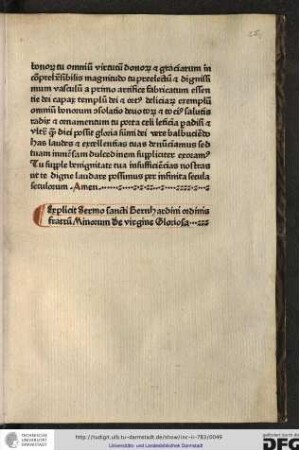 bonoꝝ tu omniū virtutū donoꝝ ⁊ graciarum in
cōprehēsibilis magnitudo tu preelectū ⁊ dignissi
mum vasculū a primo artifice fabricatum essen
tie dei capax templū dei ⁊ deliciaꝝ exemplū
omniū bonorum ⁊ salutis
radix ⁊ ornamentum tu porta celi leticia padisi ⁊
dici possit gloria sūmi dei balbuciēdo
has laudes ⁊ excellentias tuas denūciamus sed
tuam dulcedinem supliciter exoram⁹
Tu suple benignitate tua insufficiencias nostras
ut te digne laudare possimus per infinita secula
seculorum Amen
Explicit Sermo sancti Bernhardini ordinis
fratrū Minorum De virgine Gloriosa
http://tudigit.ulb.tu-darmstadt.de/show/inc-ii-783/0046
Universitäts- und Landesbibliothek Darmstadt
TECHNISCHE
UNIVERSITÄT
DARMSTADT
gefördert durch die
DFG